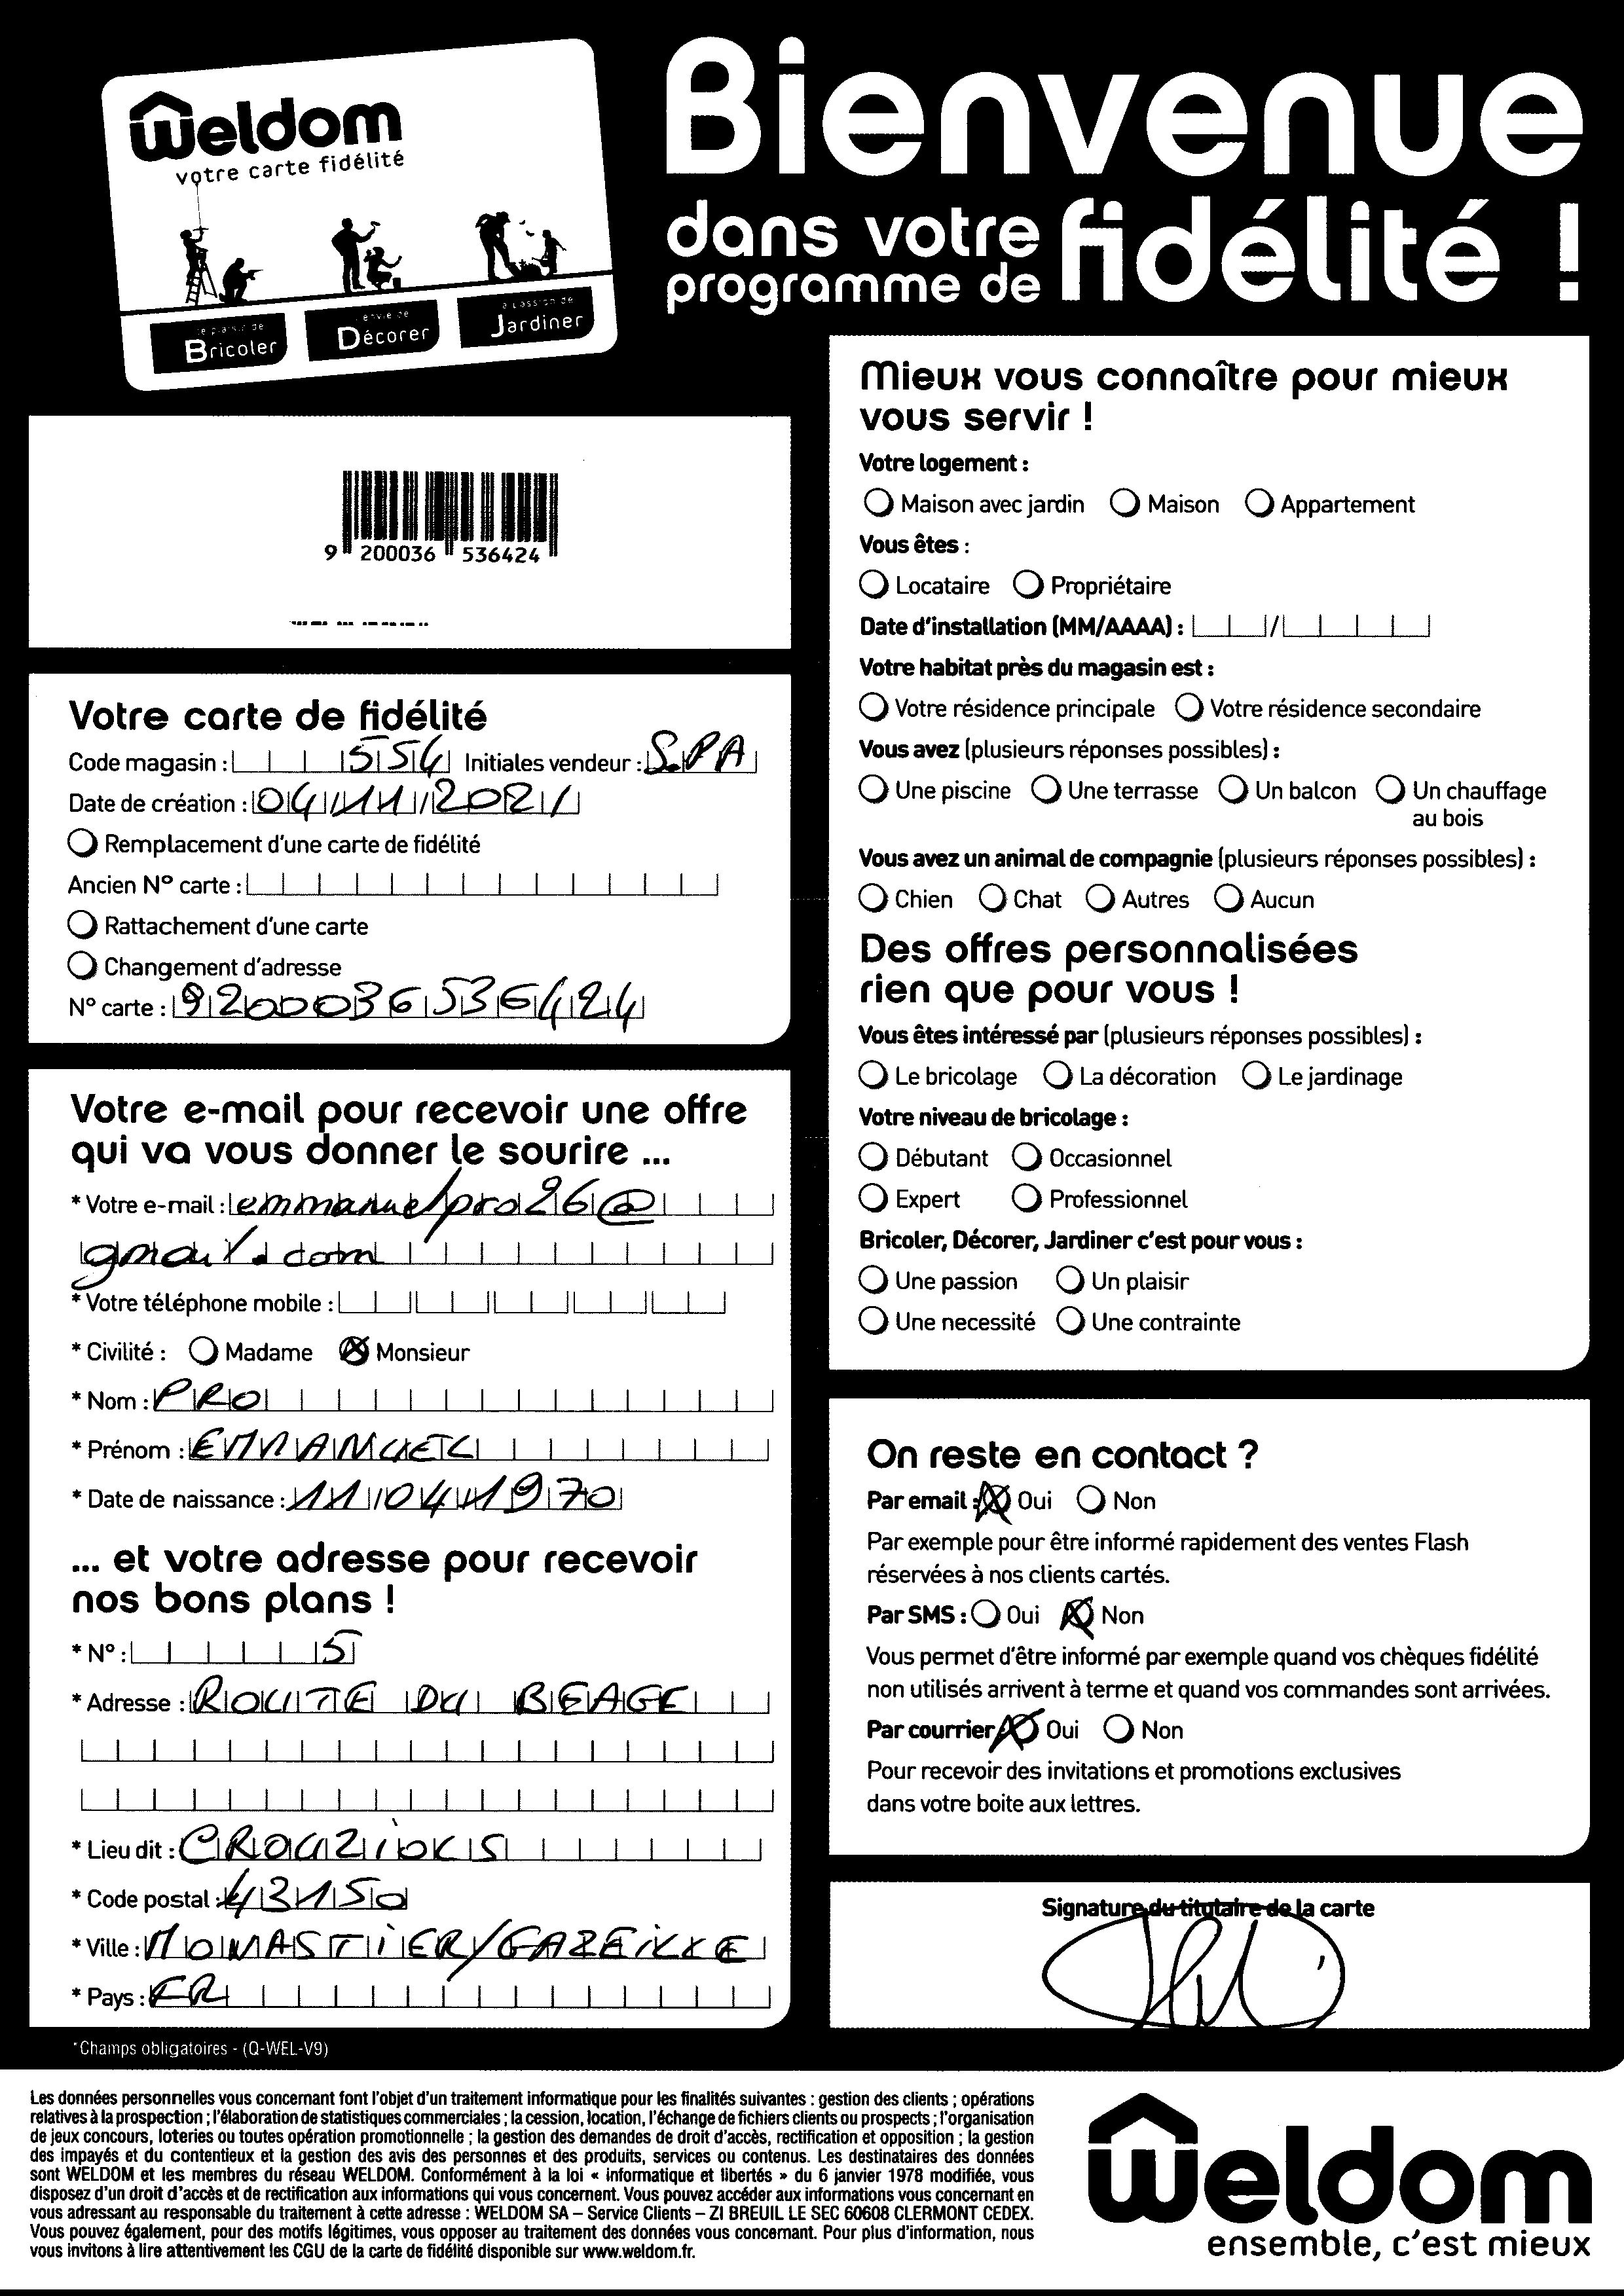 Weldom
votre carte fidélité
Le plaisir de
Bricoler
L'envie de
Décorer
La passion de
Jardiner
Bienvenue
dans votre
programme de fidélité !
9 200036 536424
Votre carte de fidélité
Code magasin : 554 Initiales vendeur : S.PA
Date de création : 04/11/2021
Remplacement d'une carte de fidélité
Ancien N° carte :
Rattachement d'une carte
Changement d'adresse
N° carte : 9200036536424
Votre e-mail pour recevoir une offre
qui va vous donner le sourire ...
* Votre e-mail : emmanuelpro26@
gmail.com
* Votre téléphone mobile :
* Civilité : Madame Monsieur
* Nom : PRO
* Prénom : EMMANUEL
* Date de naissance : 11/04/1970
... et votre adresse pour recevoir
nos bons plans !
* N° : 5
* Adresse : ROUTE DU BEAGE
* Lieu dit :
* Code postal : 43150
* Ville : MONASTIER/GAZEILLE
* Pays : FR
*Champs obligatoires - (Q-WEL-V9)
Mieux vous connaître pour mieux
vous servir !
Votre logement :
Maison avec jardin Maison Appartement
Vous êtes :
Locataire Propriétaire
Date d'installation (MM/AAAA) : /
Votre habitat près du magasin est :
Votre résidence principale Votre résidence secondaire
Vous avez (plusieurs réponses possibles) :
Une piscine Une terrasse Un balcon Un chauffage
au bois
Vous avez un animal de compagnie (plusieurs réponses possibles) :
Chien Chat Autres Aucun
Des offres personnalisées
rien que pour vous !
Vous êtes intéressé par (plusieurs réponses possibles) :
Le bricolage La décoration Le jardinage
Votre niveau de bricolage :
Débutant Occasionnel
Expert Professionnel
Bricoler, Décorer, Jardiner c'est pour vous :
Une passion Un plaisir
Une necessité Une contrainte
On reste en contact ?
Par email : Oui Non
Par exemple pour être informé rapidement des ventes Flash
réservées à nos clients cartés.
Par SMS : Oui Non
Vous permet d'être informé par exemple quand vos chèques fidélité
non utilisés arrivent à terme et quand vos commandes sont arrivées.
Par courrier Oui Non
Pour recevoir des invitations et promotions exclusives
dans votre boite aux lettres.
Signature du titulaire de la carte
Les données personnelles vous concernant font l'objet d'un traitement informatique pour les finalités suivantes : gestion des clients ; opérations
relatives à la prospection ; l'élaboration de statistiques commerciales ; la cession, location, l'échange de fichiers clients ou prospects ; l'organisation
de jeux concours, loteries ou toutes opération promotionnelle ; la gestion des demandes de droit d'accès, rectification et opposition ; la gestion
des impayés et du contentieux et la gestion des avis des personnes et des produits, services ou contenus. Les destinataires des données
sont WELDOM et les membres du réseau WELDOM. Conformément à la loi « informatique et libertés » du 6 janvier 1978 modifiée, vous
disposez d'un droit d'accès et de rectification aux informations qui vous concernent. Vous pouvez accéder aux informations vous concernant en
vous adressant au responsable du traitement à cette adresse : WELDOM SA – Service Clients – ZI BREUIL LE SEC 60608 CLERMONT CEDEX.
Vous pouvez également, pour des motifs légitimes, vous opposer au traitement des données vous concernant. Pour plus d'information, nous
vous invitons à lire attentivement les CGU de la carte de fidélité disponible sur www.weldom.fr.
Weldom
ensemble, c'est mieux